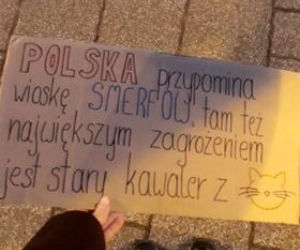 POLSKA przypomina
wioskę SMERFÓW, tam też
największym zagrożeniem
jest stary kawaler z